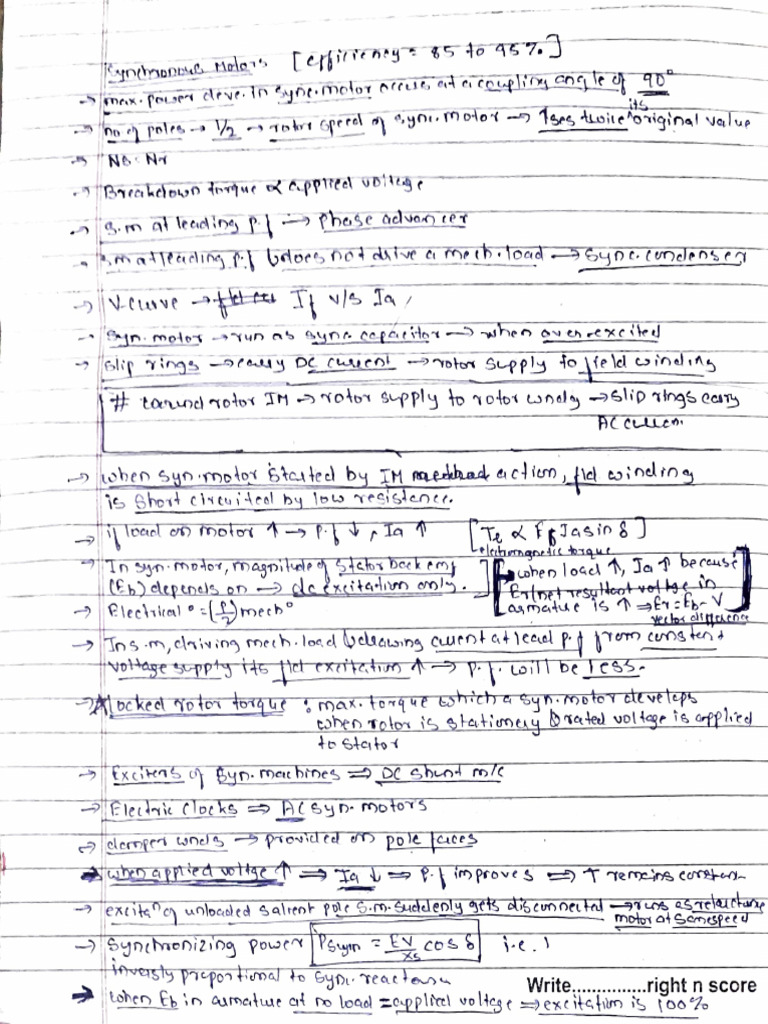 Synchronous Motors [efficiency = 85 to 95%]
→ max. power deve. in sync. motor occurs at a coupling angle of 90°
→ no of poles → 1/2 → rotor speed of sync. motor → ↑ses twice its original value
→ Ns = Nr
→ Breakdown torque ∝ applied voltage
→ S.m at leading p.f → phase advancer
→ S.m at leading p.f & does not drive a mech. load → sync. condenser
→ V-curve → If v/s Ia
→ Syn. motor → run as sync. capacitor → when over-excited
→ slip rings → carry DC current → rotor supply to field winding
# wound rotor IM → rotor supply to rotor wndg → slip rings carry
AC curren.
→ when syn. motor started by IM action, fld winding
is short circuited by low resistance.
→ if load on motor ↑ → p.f ↓, Ia ↑ [Te ∝ Ff Ja sin δ]
electromagnetic torque
→ In syn. motor, magnitude of stator back emf
(Eb) depends on → dc excitation only.
→ when load ↑, Ia ↑ because
Er (net resultant voltage in
armature is ↑ → Er = Eb - V
vector difference
→ Electrical° = (P/2) mech°
→ In s.m, driving mech. load & drawing current at lead p.f from constant
voltage supply its fld excitation ↑ → p.f. will be less.
→ * locked rotor torque : max. torque which a syn. motor develops
when rotor is stationery & rated voltage is applied
to stator
→ Exciters of syn. machines ⇒ DC shunt m/c
→ Electric clocks ⇒ AC syn. motors
→ damper wnds → provided on pole faces
→ when applied voltge ↑ ⇒ Ia ↓ ⇒ p.f improves ⇒ T remains constan
→ excitaⁿ of unloaded salient pole S.m. suddenly gets disconnected → runs as reluctance
motor at same speed
→ Synchronizing power Psyn = EV/Xs cos δ i.e. 1
inversly proportional to sync. reactance
→ when Eb in armature at no load = applied voltage ⇒ excitation is 100%
Write...............right n score